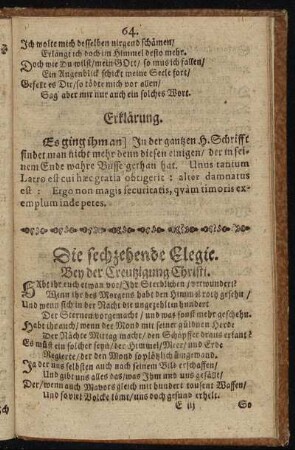 64.
Ich wolte mich desselben nirgend schämen/
Erlangt ich doch im Himmel desto mehr.
Doch wie Du wilst/mein GOtt/ so mus ich fallen/
Ein Augenblick schickt meine Seele fort/
Gefelt es Dir/ so tödte mich vor allen/
Sag aber mir nur auch ein solches Wort.
Erklärung.
Es ging ihm an] In der gantzen H. Schrifft
findet man nicht mehr denn diesen einigen/ der in sei-
nem Ende wahre Busse gethan hat. Unus tantum
Latro est cui hæc gratia obtigerit: alter damnatus
est: Ergo non magis securitatis, quàm timoris ex-
emplum inde petes.
Die sechzehende Elegie.
Bey der Creutzigung Christi.
Habt ihr auch etwan vor/ Ihr Sterblichen/ verwundert/
Wenn ihr des Morgens habt den Himmel roth gesehn/
Und wenn sich in der Nacht die ungezehlten hundert
Der Sternen vorgemacht/ und was sonst mehr geschehn.
Habt ihr auch/ wenn der Mond mit seiner güldnen Herde
Der Nächte Mittag macht/ den Schöpffer draus erkant?
Es müst ein solcher seyn/ der Himmel/ Meer/ und Erde
Regierte/ der den Mond so plötzlich umgewand.
In der uns selbsten auch nach seinem Bild erschaffen/
Und gibt uns alles das/ was Ihm und uns gefällt/
Der/ wenn auch Mavors gleich mit hundert tausent Waffen/
Und so viel Volcke kömt/ uns doch gesund erhelt.
E iij So